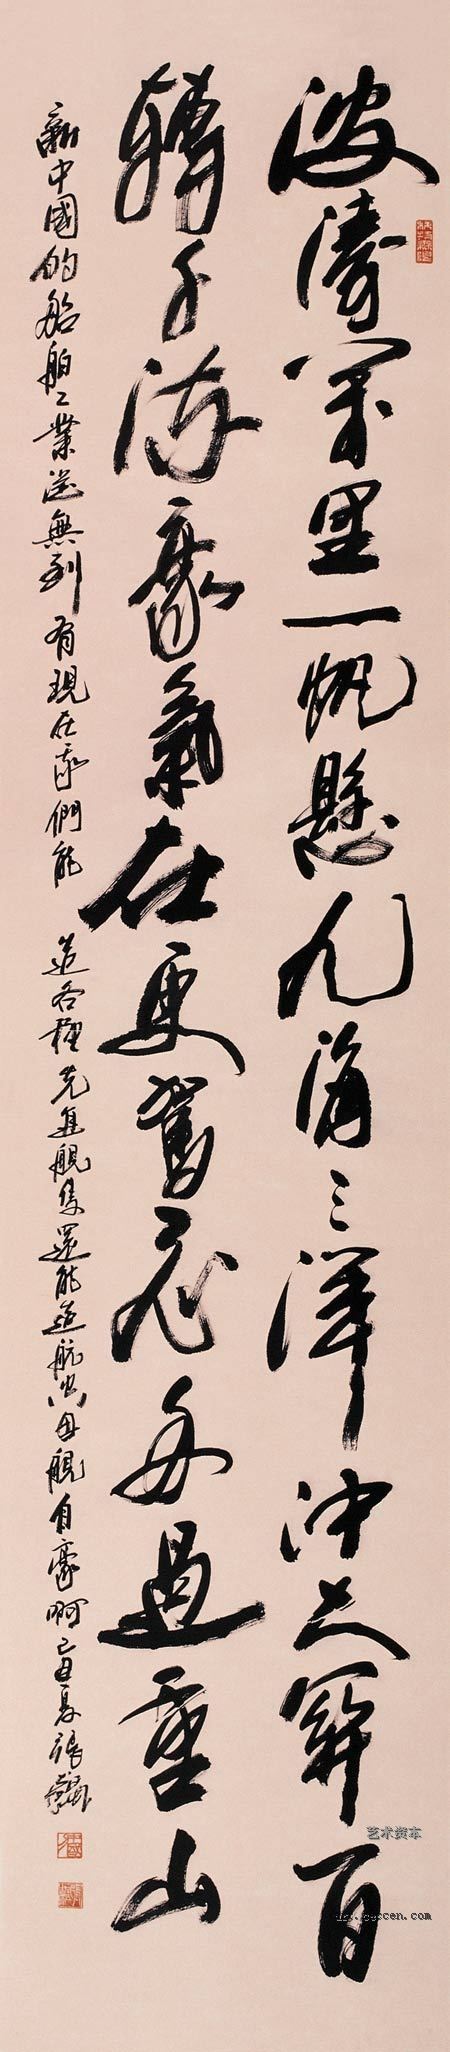 波濤萬里一帆懸九海三洋沖天百
轉千流豪氣在更駕飛舟過重山
新中國的船舶工業從無到有現在我們能造各種先進艦隻還能造航空母艦自豪啊己丑夏張飆
艺术资本